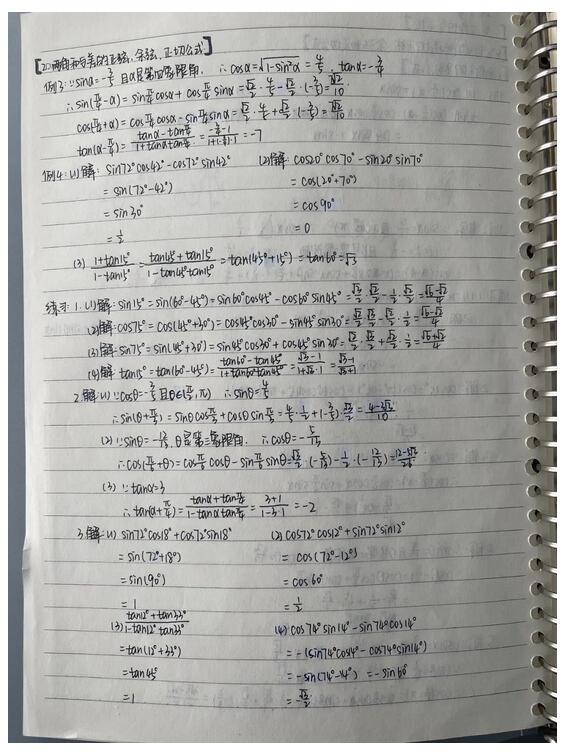 [20.两角和与差的正弦、余弦、正切公式]
例3:∵sinα=-3/5 且α是第四象限角, ∴cosα=√(1-sin²α) = 4/5, tanα=-3/4
∴sin(π/4-α) = sinπ/4cosα - cosπ/4sinα = √2/2·4/5-√2/2·(-3/5)=7√2/10
cos(π/4+α) = cosπ/4cosα-sinπ/4sinα = √2/2·4/5-√2/2·(-3/5)=7√2/10
tan(α-π/4) = (tanα-tanπ/4)/(1+tanαtanπ/4) = (-3/4-1)/(1+(-3/4)·1) = -7
例4:(1)解:sin72°cos42°-cos72°sin42° (2)解:cos20°cos70°-sin20°sin70°
= sin(72°-42°) = cos(20°+70°)
= sin30° = cos90°
= 1/2 = 0
(3) (1+tan15°)/(1-tan15°) = (tan45°+tan15°)/(1-tan45°tan15°) = tan(45°+15°) = tan60°=√3
练习:1.(1)解:sin15°=sin(60°-45°)=sin60°cos45°-cos60°sin45°=√3/2·√2/2-1/2·√2/2=(√6-√2)/4
(2)解:cos75°=cos(45°+30°)=cos45°cos30°-sin45°sin30°=√2/2·√3/2-√2/2·1/2=(√6-√2)/4
(3)解:sin75°=sin(45°+30°)=sin45°cos30°+cos45°sin30°=√2/2·√3/2+√2/2·1/2=(√6+√2)/4
(4)解:tan15°=tan(60°-45°)=(tan60°-tan45°)/(1+tan60°tan45°)=(√3-1)/(1+√3·1)=(√3-1)/(√3+1)
2.解:(1)∵cosθ=-3/5且θ∈(π/2,π) ∴sinθ=4/5
∴sin(θ+π/3)=sinθcosπ/3+cosθsinπ/3=4/5·1/2+(-3/5)·√3/2=(4-3√3)/10
(2)∵sinθ=-12/13,θ是第三象限角, ∴cosθ=-5/13
∴cos(π/6+θ)=cosπ/6cosθ-sinπ/6sinθ=√3/2·(-5/13)-1/2·(-12/13)=(12-5√3)/26
(3)∵tanα=3
∴tan(α+π/4)=(tanα+tanπ/4)/(1-tanαtanπ/4)=(3+1)/(1-3·1)=-2
3.解:(1)sin72°cos18°+cos72°sin18° (2)cos72°cos12°+sin72°sin12°
=sin(72°+18°) = cos(72°-12°)
=sin(90°) = cos60°
=1 = 1/2
(3)(tan12°+tan33°)/(1-tan12°tan33°) (4)cos74°sin14°-sin74°cos14°
=tan(12°+33°) =-(sin74°cos14°-cos74°sin14°)
=tan45° =-sin(74°-14°) =-sin60°
=1 =-√3/2